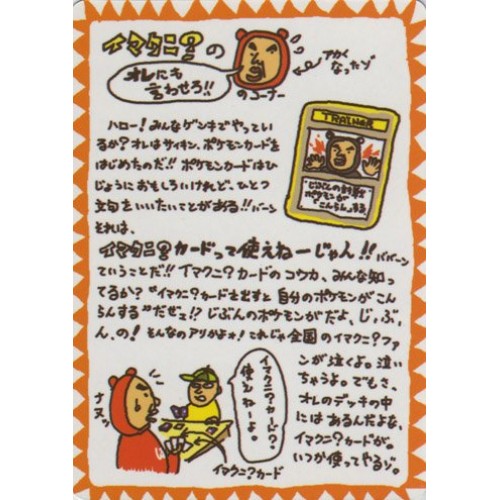 イマクニ?の
オレにも
言わせろ!!
のコーナー
アカく
なったゾ
ハロー!みんなゲンキでやってい
るか?オレはサイキン、ポケモンカードを
はじめたのだ!!ポケモンカードはひ
じょうにおもしろいけれど、ひとつ
文句をいいたいことがある!!バーン
それは、
TRAINER
じぶんの対戦
ポケモンが
こんらんする
イマクニ?カードって使えねーじゃん!!ババーン
ていうことだ!!イマクニ?カードのコウカ、みんな知っ
てるか?“イマクニ?カードを出すと自分のポケモンがこん
らんする”だぜェ!?じぶんのポケモンがだよ、じ、ぶ、
ん、の!そんなのアリかよォ!これじゃ全国のイマクニ?ファ
ンが泣くよ。泣い
ちゃうよ。でもさ、
オレのデッキの中
にはあるんだよな、
イマクニ?カードが。
いつか使ってやるゾ。
ナヌッ
イマクニ?カード?
使えねーよ。
イマクニ?カード